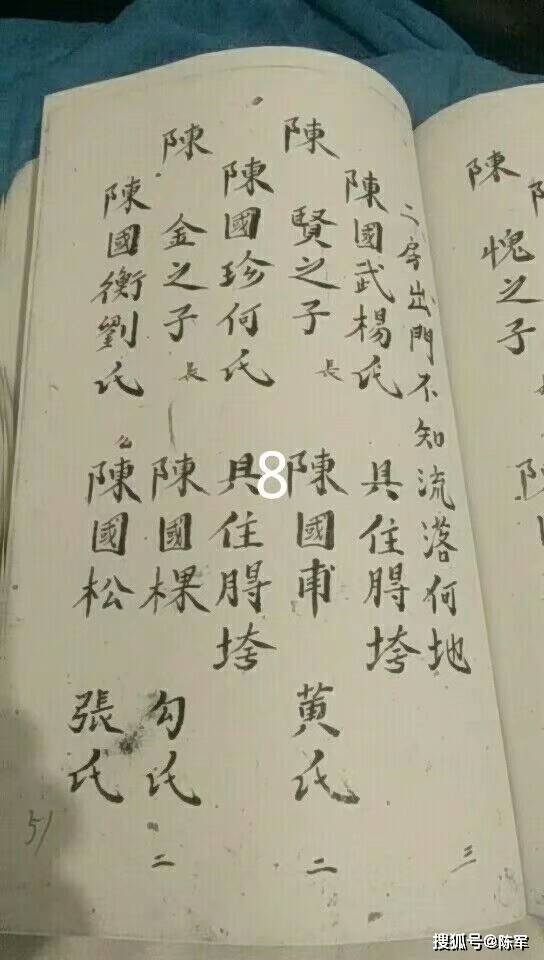 陳
愧之子
三
二字出門不知流落何地
陳國武楊氏 具住㝵垮
陳 賢之子 長 陳國甫 黄氏 二
陳國珍何氏 具住㝵垮
陳 金之子 長 陳國棵 勾氏 二
陳國衡劉氏 么 陳國松 張氏
51
8
搜狐号@陈军